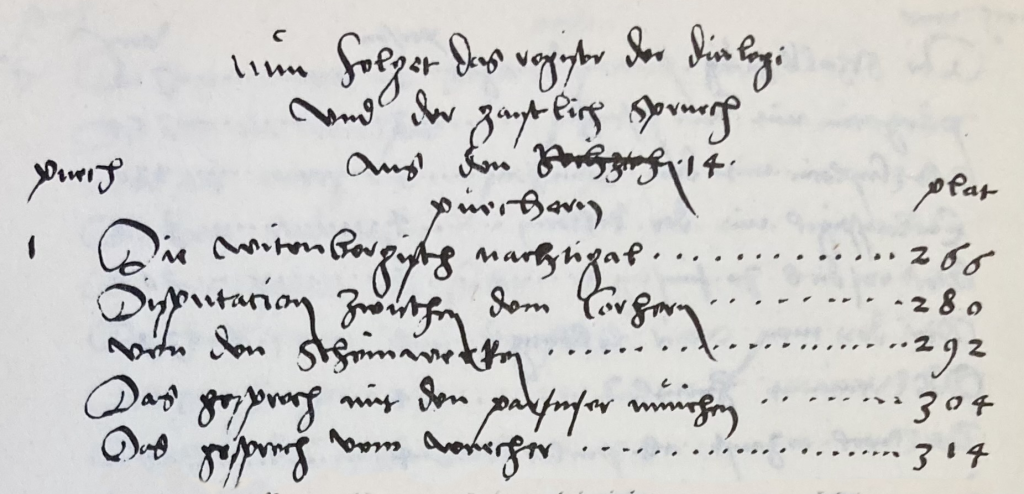 Nun folget das register der dialogi
vnd der gaystlich spruech
puech aus den 14. plat
puechern
1 Die witenbergisch nachtigal . . . . . . . . . . . . . 266
Disputacion zwischen dem korhern . . . . . . . . . 280
von den scheinwercken . . . . . . . . . . . . . . . . . 292
Das gesprech mit den parfuser münichen . . . . . . . 304
Das gesprech vom wuecher . . . . . . . . . . . . . . . . 314